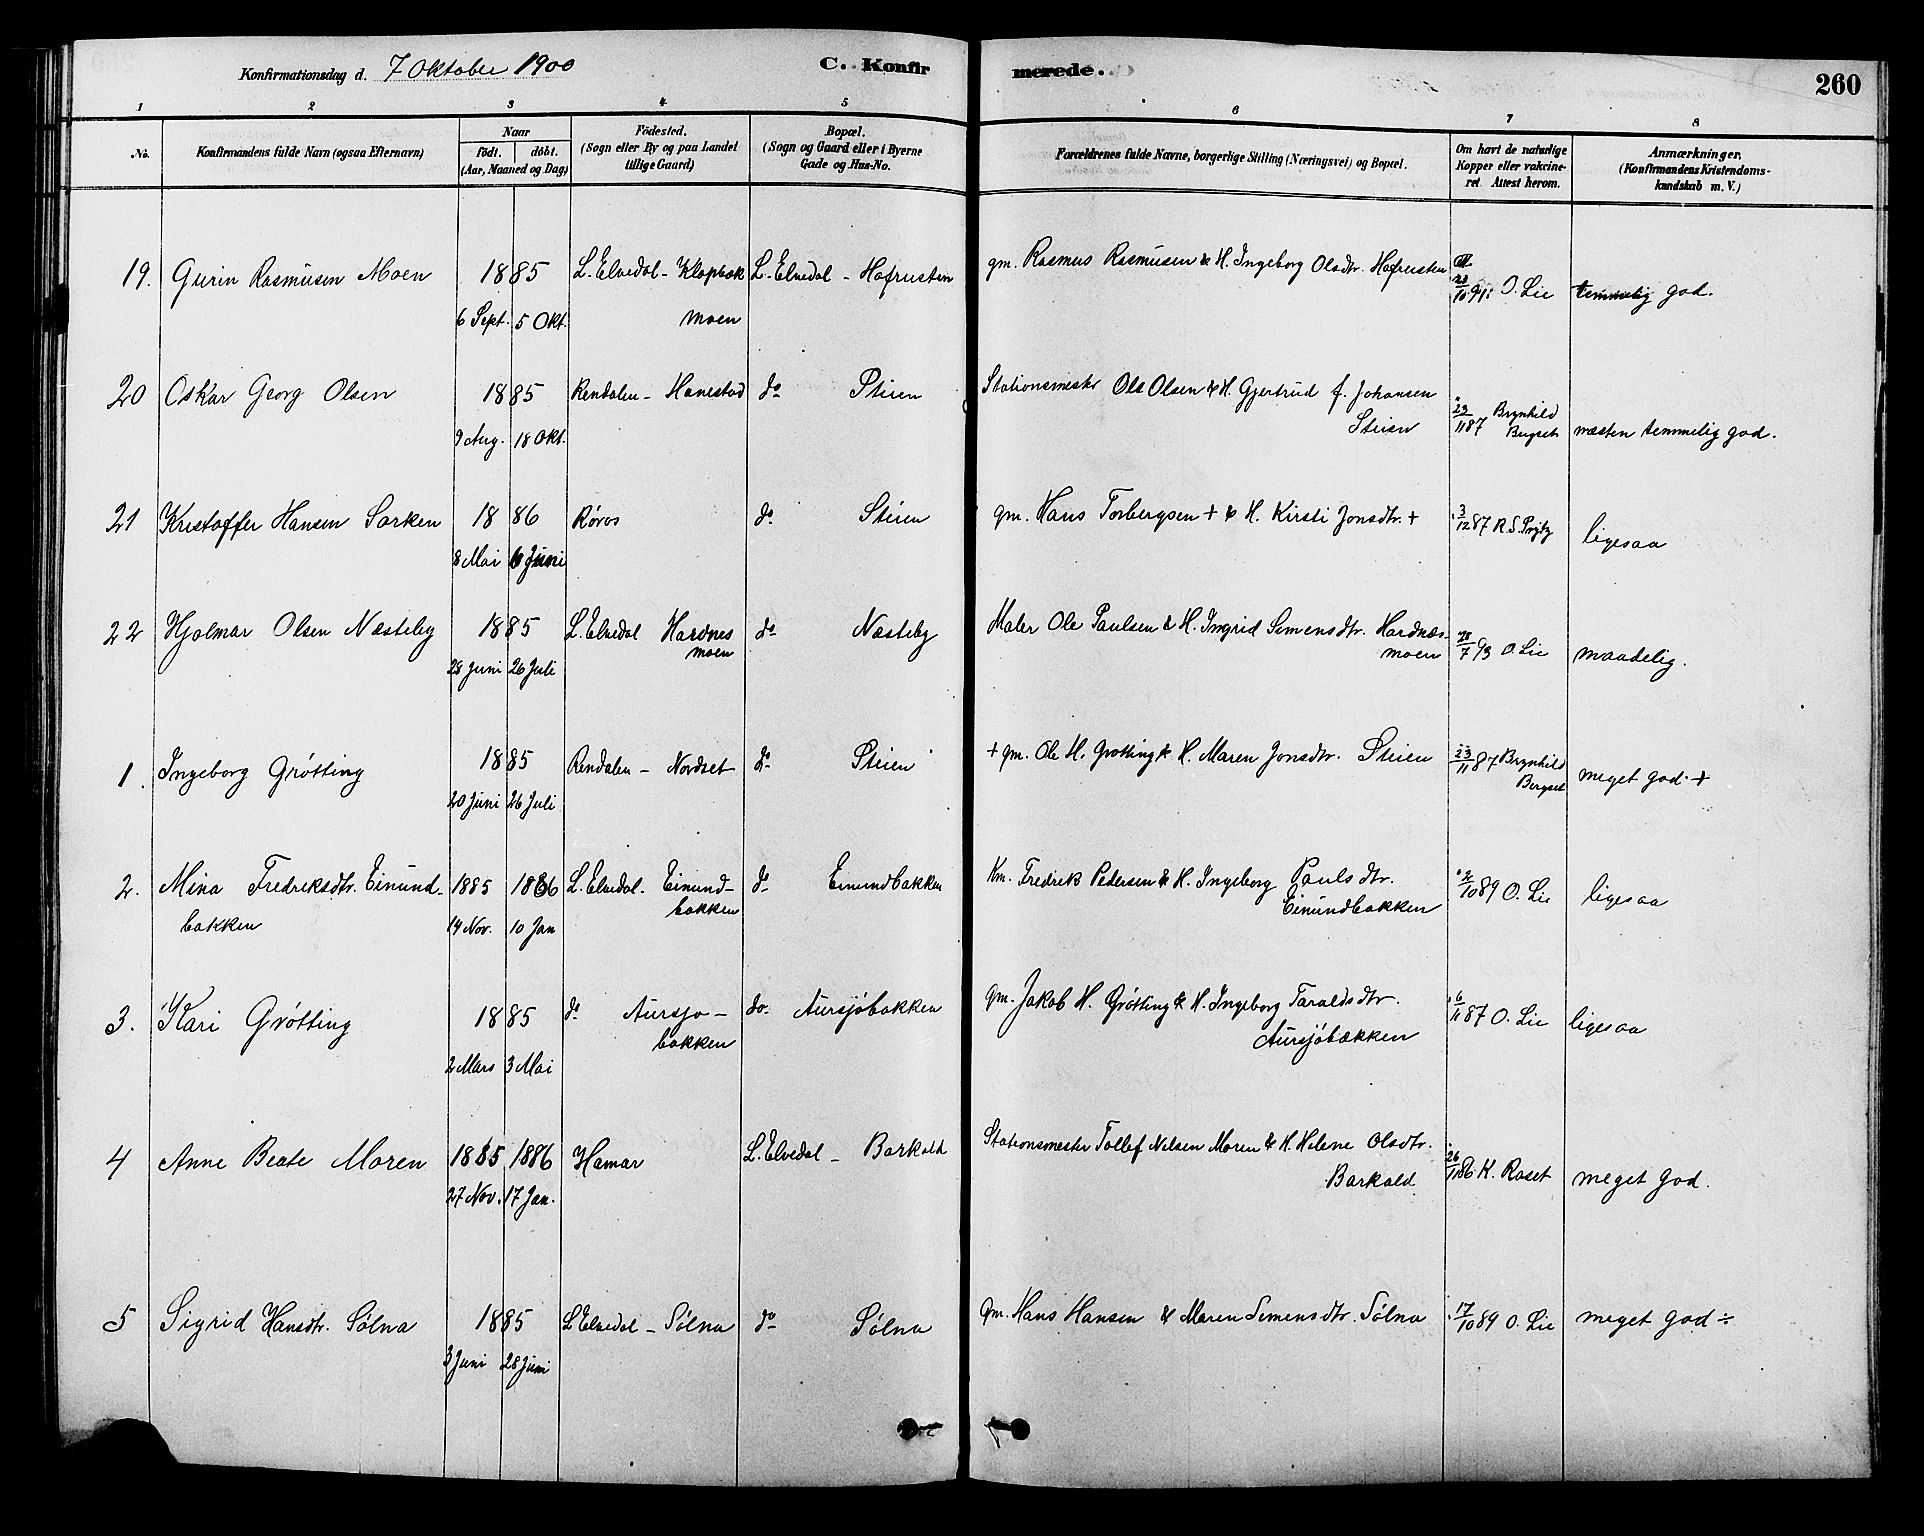 Konfirmationsdag d. 7 Oktober 1900
C. Konfirmerede.
260
1 2 3 4 5 6 7 8
No.
Konfirmandens fulde Navn (ogsaa Efternavn)
Naar
födt. döbt.
(Aar, Maaned og Dag)
Födested.
(Sogn eller By og paa Landet
tillige Gaard)
Bopæl.
(Sogn og Gaard eller i Byerne
Gade og Hus-No.
Forældrenes fulde Navne, borgerlige Stilling (Næringsvei) og Bopæl.
Om havt de naturlige
Kopper eller vakcine-
ret. Attest herom.
Anmærkninger,
(Konfirmandens Kristendoms-
kundskab m. V.)
19. Gurin Rasmusen Moen 1885 L. Elvedal - Klopbak L. Elvedal - Hofrusten gm. Rasmus Rasmusen & H. Ingeborg Olsdtr. Hofrusten
6 Sept. 5 Okt. moen 91 O. Lie temmelig god.
20 Oskar Georg Olsen 1885 Rendalen - Hanestad do Stien Stationsmester Ole Olsen & H. Gjertrud f. Johansen
9 Aug. 18 Okt. Stien 23/11 87 Brynhild Bergset næsten temmelig god.
21 Kristoffer Hansen Sorken 1886 Røros do Stien gm. Hans Torbergsen + & H. Kirsti Jonsdtr. + 3/12 87 R. S. Prytz ligesaa
8 Mai 6 Juni
22 Hjalmar Olsen Næsteby 1885 L. Elvedal Hardnes do Næsteby Maler Ole Paulsen & H. Ingrid Simensdtr. Hardnæs-
28 Juni 26 Juli moen moen 7 93 O. Lie maadelig.
1. Ingeborg Grøtting 1885 Rendalen - Nordset do Stien + gm. Ole H. Grøtting & H. Maren Jonsdtr. Stien 23/11 87 Brynhild
20 Juni 26 Juli Bergset meget god +
2. Mina Fredriksdtr. Einund- 1885 1886 L. Elvedal. Einund- do Einundbakken Km. Fredrik Pedersen & H. Ingeborg Paulsdtr.
bakken 14 Nov. 10 Jan bakken Einundbakken 2/10 89 O. Lie ligesaa
3. Kari Grøtting 1885 do Aursjø - do Aursjøbakken gm. Jakob H. Grøtting & H. Ingeborg Taraldsdtr.
2 Mars 3 Mai bakken Aursjøbækken 6/11 87 O. Lie ligesaa
4 Anne Beate Moren 1885 1886 Hamar L. Elvedal - Barkald Stationsmester Tollef Nilsen Moren & H. Helene Olsdtr.
27 Nov. 17 Jan. Barkald 26/11 86 K. Roset meget god.
5 Sigrid Hansdtr. Sølna 1885 L Elvedal - Sølna do Sølna gm. Hans Hansen & Maren Simensdtr. Sølna 17/10 89 O. Lie meget god ÷
3 Juni 28 Juni